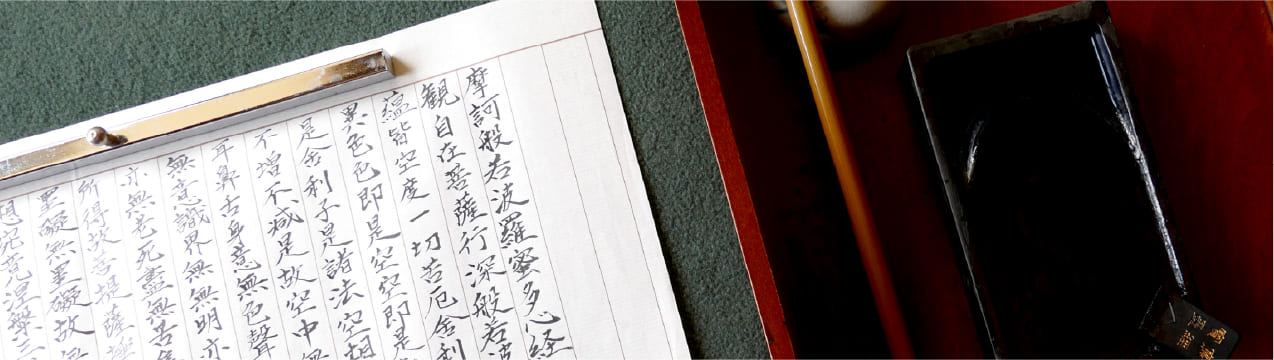 摩訶般若波羅蜜多心経
観自在菩薩行深般若波
蘊皆空度一切苦厄舎利
異色色即是空空即是
是舎利子是諸法空相
不増不減是故空中無
耳鼻舌身意無色聲
無意識界無無明亦
亦無老死盡無苦集
所得故菩提薩埵
罣礙無罣礙故無
想究竟涅槃三